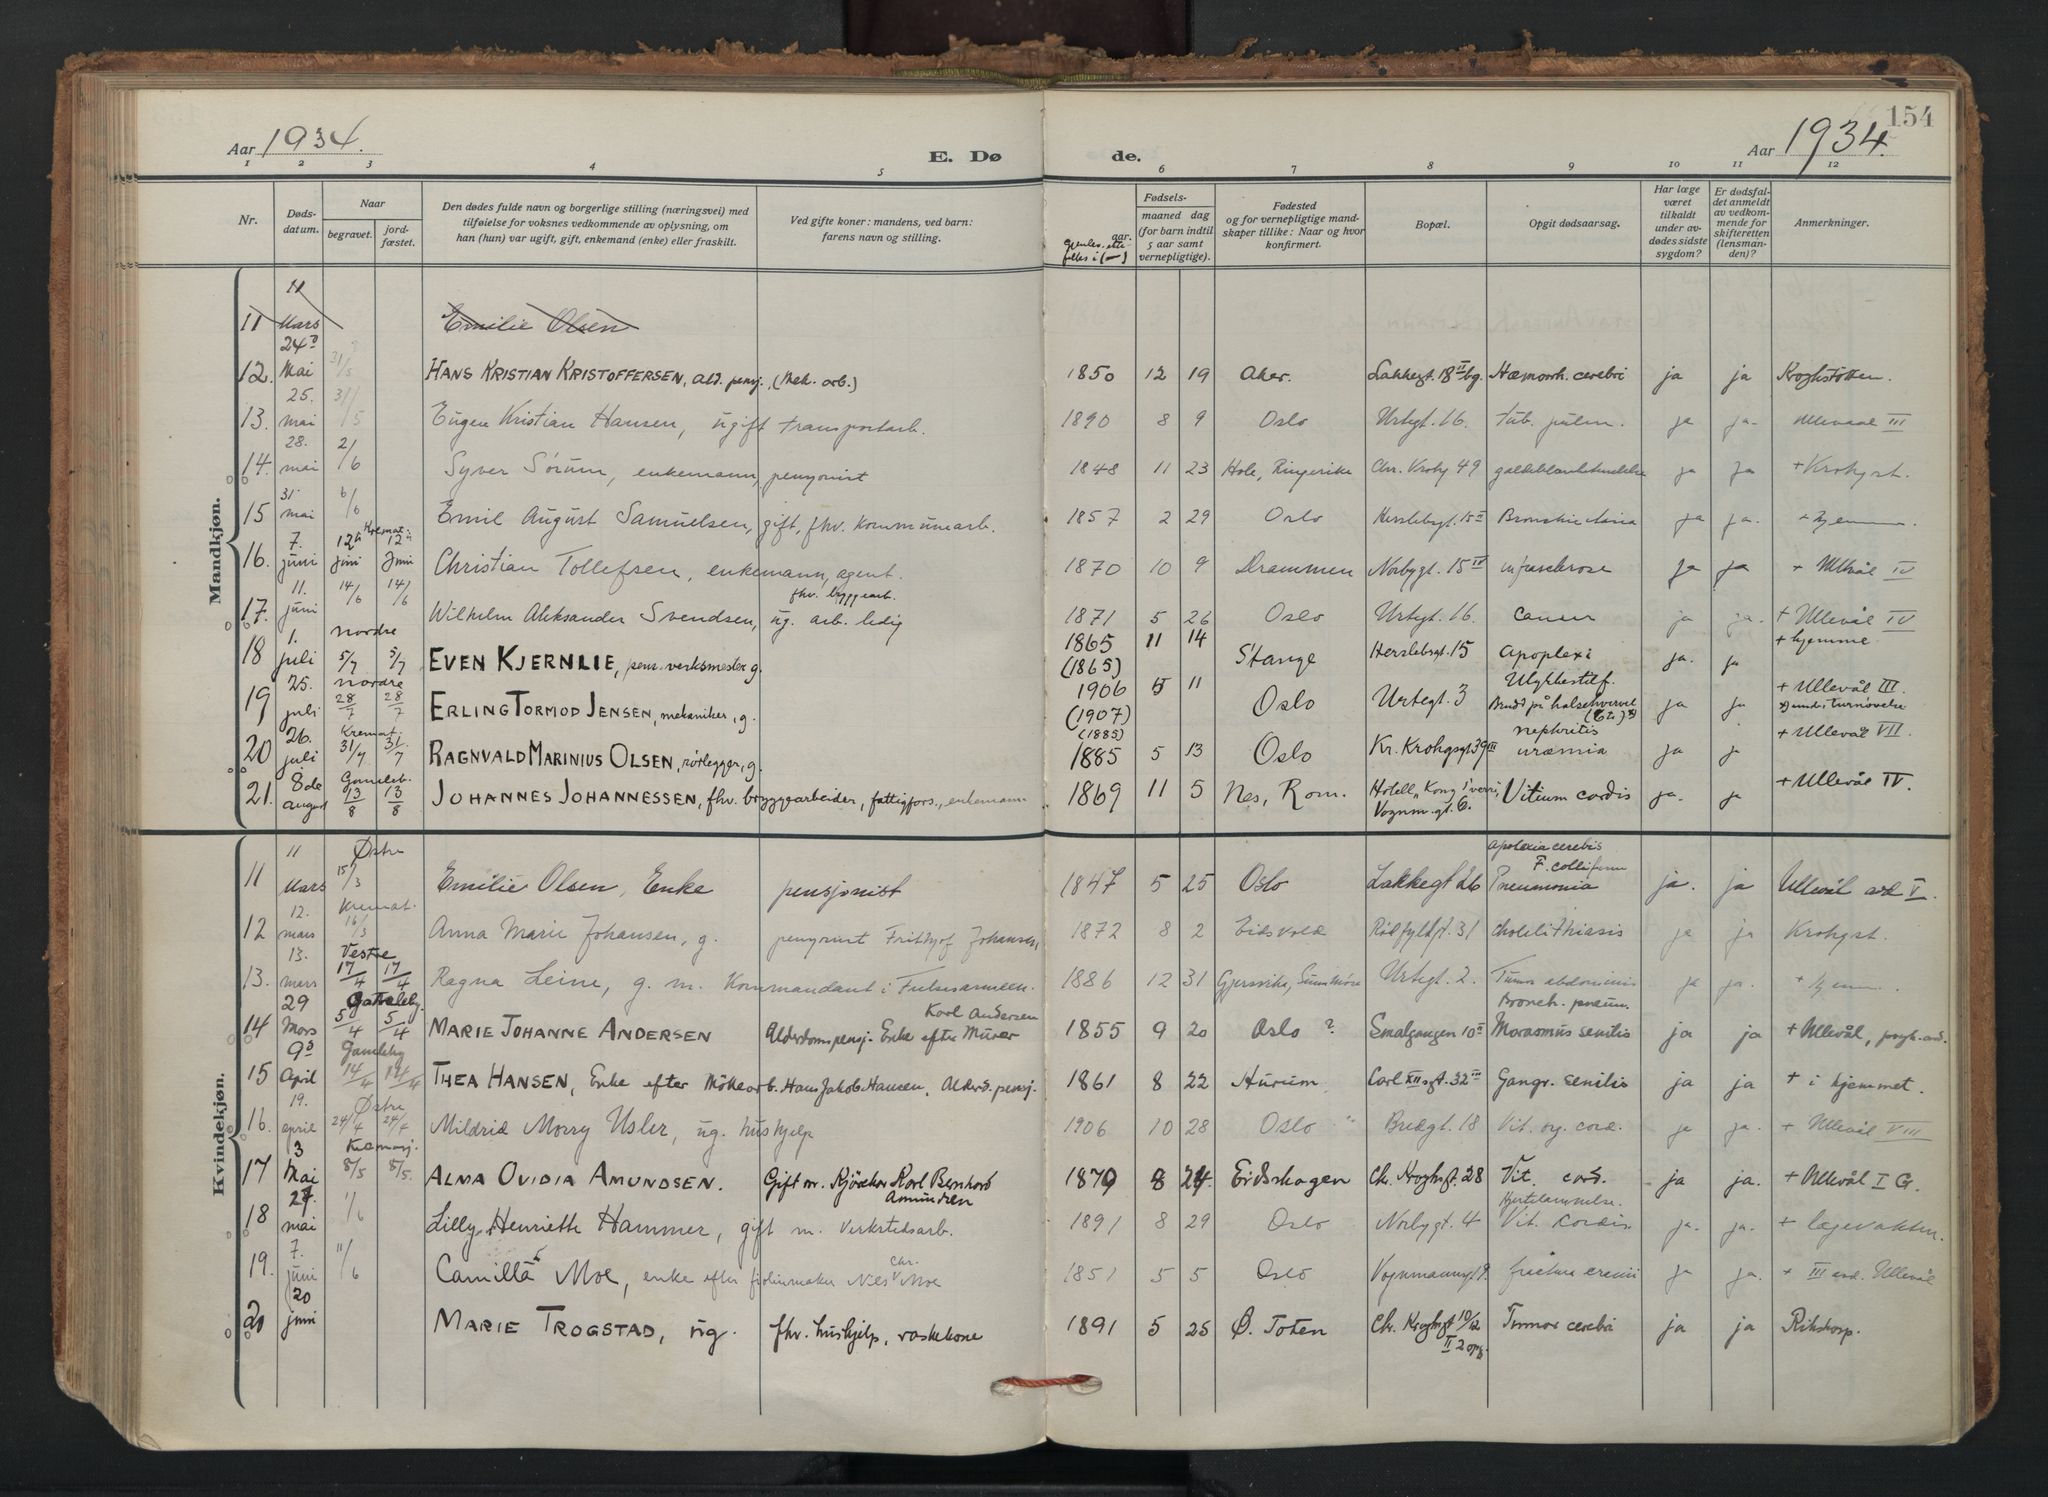 154
Aar 1934. E. Dø de. Aar 1934.
1 2 3 4 5 6 7 8 9 10 11 12
Nr. Døds-datum. Naar begravet. jord-fæstet. Den dødes fulde navn og borgerlige stilling (næringsvei) med tilføielse for voksnes vedkommende av oplysning, om han (hun) var ugift, gift, enkemand (enke) eller fraskilt. Ved gifte koner: mandens, ved barn: farens navn og stilling. Fødsels- aar. maaned dag (for barn indtil 5 aar samt vernepligtige). Fødested og for vernepligtige mand-skaper tillike: Naar og hvor konfirmert. Bopæl. Opgit dødsaarsag. Har læge været tilkaldt under av-dødes sidste sygdom? Er dødsfal-det anmeldt av vedkom-mende for skifteretten (lensman-den)? Anmerkninger.
Mandkjøn.
11 11 Mars Emilie Olsen
12. 24 Mai 31/5 HANS KRISTIAN KRISTOFFERSEN, ald. pensj. (Mek. arb.) 1850 12 19 Aker. Lakkegt. 18 II bg. Hæmorrh. cerebri ja ja Kroghstøtten.
13. 25. mai 31/5 Eugen Kristian Hansen, ugift transportarb. 1890 8 9 Oslo Urtegt. 16. tub. pulm. ja ja. Ullevaal III
14. 28. mai 2/6 Syver Sørum, enkemann, pensjonist 1848 11 23 Hole, Ringerike Chr. Krohg 49 ja ja + Krohgst.
15 31 mai 6/6 Emil August Samuelsen, gift, fhv. kommunearb. 1857 2 29 Oslo Herslebsgt. 15 II ja ja. + hjemme.
16. 7. juni Kremat. 12te Juni 12te Juni Christian Tollefsen, enkemann, agent. 1870 10 9 Drammen Norbygt. 15 IV ja ja + Ullevål IV
17. 11. juni 14/6 14/6 Wilhelm Aleksander Svendsen, ug. arb. ledig fhv. byggearb. 1871 5 26 Oslo Urtegt. 16 cancer ja ja. + Ullevål IV
18 1. juli nordre 5/7 5/7 EVEN KJERNLIE, pens. verksmester g. 1865 (1865) 11 14 Stange Herslebsgt. 15 Apoplexi ja. ja + hjemme
19 25. juli nordre 28/7 28/7 ERLING TORMOD JENSEN, mekaniker, g. 1906 (1907) 5 11 Oslo Urtegt. 3 Ulykkestilf. Brudd på halsehvirvel ja ja + Ullevål III.
20 26. juli Kremat. 31/7 31/7 RAGNVALD MARINIUS OLSEN, rørlegger, g. (1885) 1885 5 13 Oslo Kr. Krohgsgt 39 III nephritis uræmia ja j + Ullevål VII.
21. 8de august Gamleb. 13/8 13/8 JOHANNES JOHANNESSEN, fhv. bryggearbeider, fattigfors., enkemann 1869 11 5 Nes, Rom. Hotell "Kong Sverre, Vognm. gt. 6. Vitium cordis ja. ja + Ullevål IV.
Kvindekjøn.
11 11 Mars Østre 15/3 Emilie Olsen, Enke pensjonist 1847 5 25 Oslo Lakkegt 26 Apoplexia cerebris F. colli fem Pneumonia ja. ja Ullevål avd V.
12 12. mars Kremat. 16/3 Anna Marie Johansen, g. pensjonist Frithjof Johansen, 1872 8 2 Eidsvold Rødfyldgt. 31 Cholelithiasis ja ja Krohgst.
13. 13. mars Vestre 17/4 17/4 Ragna Leine, g. m. Kommandant i Frelsesarmeen. 1886 12 31 Gjersvika, Sunnmøre Urtegt. 2. Tumor abdominis ja ja. + hjemme.
14 29 Mars Gamleby. 5/4 5/4 MARIE JOHANNE ANDERSEN Alderdomspensj. Enke efter Murer Karl Andersen 1855 9 20 Oslo ? Smalgangen 10 II Bronch. pneum. Marasmus senilis ja ja + Ullevål, psyk. avd.
15 9de April Gamleby 14/4 14/4 THEA HANSEN, Enke efter Møkearb. Hans Jakob Hansen, Alderd. pensj. 1861 8 22 Hurum Carl XII sgt. 32 III Gangr. senilis ja ja + i hjemmet.
16. 19. april Østre 24/4 24/4 Mildrid Morry Usler, ug. hushjelp 1906 10 28 Oslo Bredgt. 18 Vit. org. cord. ja ja. + Ullevål VIII
17 3 Mai Kremasj. 8/5 8/5. ALMA OVIDIA AMUNDSEN. Gift m. Kjørekar Karl Bernhard Amundsen 1879 8 24. Eidskogen Ch. Kroghsgt. 28 Vit. cord. ja ja. + Ullevål I G.
18 27. mai 1/6 Lilly Henriette Hammer, gift m. Verkstedsarb. 1891 8 29 Oslo Norbygt. 4 Hjertelammelse. Vit. cordis. ja. ja. + lægevakten.
19. 7. juni 11/6 Camilla Moe, enke efter fiolinmaker Nils Chr. Moe 1851 5 5 Oslo Vognmannsgt 9. fractura cranii ja ja. + III avd. Ullevål
20 20 juni MARIE TROGSTAD, ug. fhv. hushjelp, vaskekone 1891 5 25 Ø. Toten Ch. Kroghsgt 10/12 II 2 opg. Tumor cerebri ja ja Rikshosp.